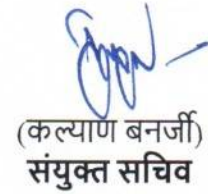 (कल्याण बनर्जी)
संयुक्त सचिव